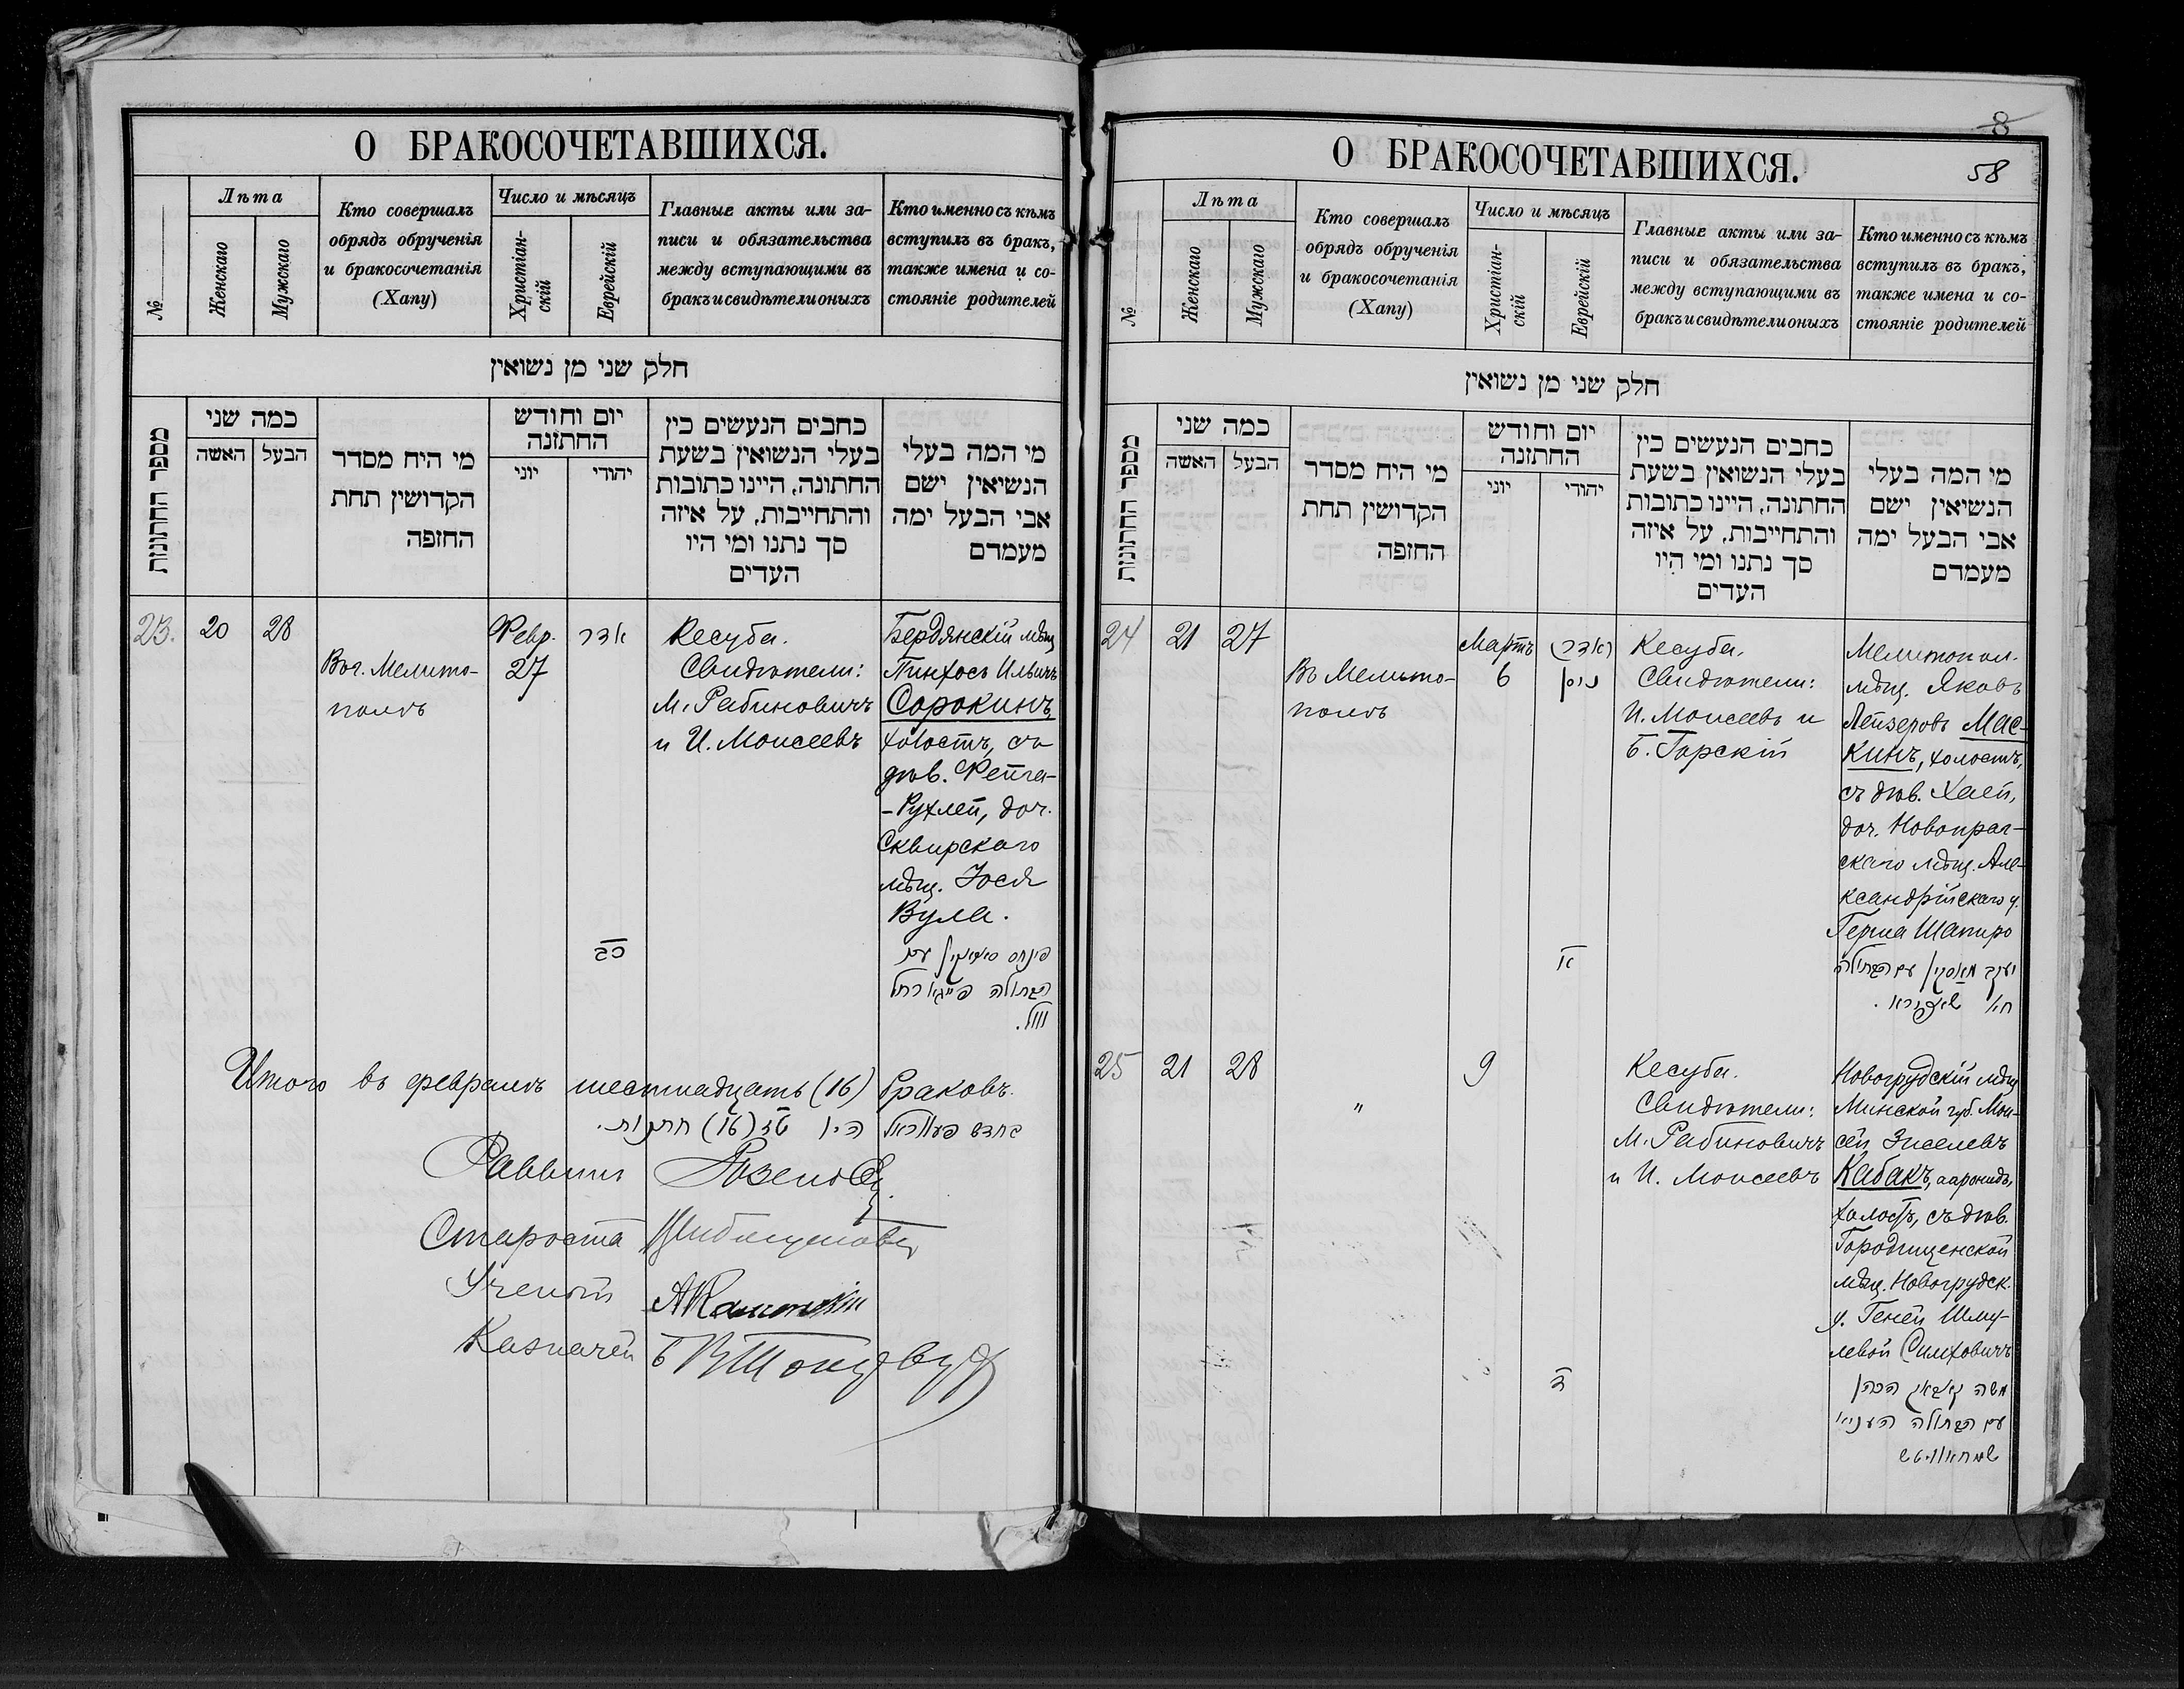 О БРАКОСОЧЕТАВШИХСЯ.
№
Лѣта
Женскаго
Мужскаго
Кто совершалъ
обрядъ обрученія
и бракосочетанія
(Хапу)
Число и мѣсяцъ
Христіан-
скій
Еврейскій
Главные акты или за-
писи и обязательства
между вступающими въ
бракъ и свидѣтели оныхъ
Кто именно съ кѣмъ
вступилъ въ бракъ,
также имена и со-
стояніе родителей
חלק שני מן נשואין
מספר החתונות
כמה שני
האשה
הבעל
מי היח מסדר
הקדושין תחת
החזפה
יום וחודש
החתזנה
יוני
יהודי
כחבים הנעשים כין
בעלי הנשואין בשעת
החתונה, היינו כתובות
והתחייבות, על איזה
סך נתנו ומי היו
העדים
מי המה בעלי
הנשיאין ישם
אבי הבעל ימה
מעמדם
23.
20
28
Въ г. Мелито-
полѣ
Февр.
27
אדר
כב
Кесуба.
Свидѣтели:
М. Рабиновичъ
и И. Моисеевъ
Бердянскій мѣщ
Пинхосъ Ильичъ
Сорокинъ,
холостъ, съ
дѣв. Фейга-
-Рухлей, доч.
Сквирскаго
мѣщ. Іося
Вула.
פינחס סאראקין עם
הבתולה פייגא רחל
וול.
Итого въ февралѣ шестнадцать (16) браковъ.
בחדש פעווראל היו טז (16) חתונות.
Раввинъ
Староста
Ученый
Казначей
8
58
О БРАКОСОЧЕТАВШИХСЯ.
№
Лѣта
Женскаго
Мужскаго
Кто совершалъ
обрядъ обрученія
и бракосочетанія
(Хапу)
Число и мѣсяцъ
Христіан-
скій
Еврейскій
Главные акты или за-
писи и обязательства
между вступающими въ
бракъ и свидѣтели оныхъ
Кто именно съ кѣмъ
вступилъ въ бракъ,
также имена и со-
стояніе родителей
חלק שני מן נשואין
מספר החתונות
כמה שני
האשה
הבעל
מי היח מסדר
הקדושין תחת
החזפה
יום וחודש
החתזנה
יוני
יהודי
כחבים הנעשים כין
בעלי הנשואין בשעת
החתונה, היינו כתובות
והתחייבות, על איזה
סך נתנו ומי היו
העדים
מי המה בעלי
הנשיאין ישם
אבי הבעל ימה
מעמדם
24
21
27
Въ Мелито-
полѣ
Мартъ
6
(אדר)
ניסן
א
Кесуба.
Свидѣтели:
И. Моисеевъ и
Б. Горскій
Мелитопол.
мѣщ. Яковъ
Лейзеровъ Мас-
кинъ, холостъ,
съ дѣв. Хаей,
доч. Новопраг-
скаго мѣщ. Але-
ксандрійскаго у.
Герша Шапиро
יעקב מאסקין עם הבתולה
חיא שאפירא.
25
21
28
"
9
ד
Кесуба.
Свидѣтели:
М. Рабиновичъ
и И. Моисеевъ
Новогрудскій мѣщ
Минской губ. Мои-
сей Зиселевъ
Кабакъ, ааронидъ,
холостъ, съ дѣв.
Городищенской
мѣщ. Новогрудск.
у. Геней Шму-
левой Симховичъ
משה קאבאק הכהן
עם הבתולה העניא
שמחאוויטש